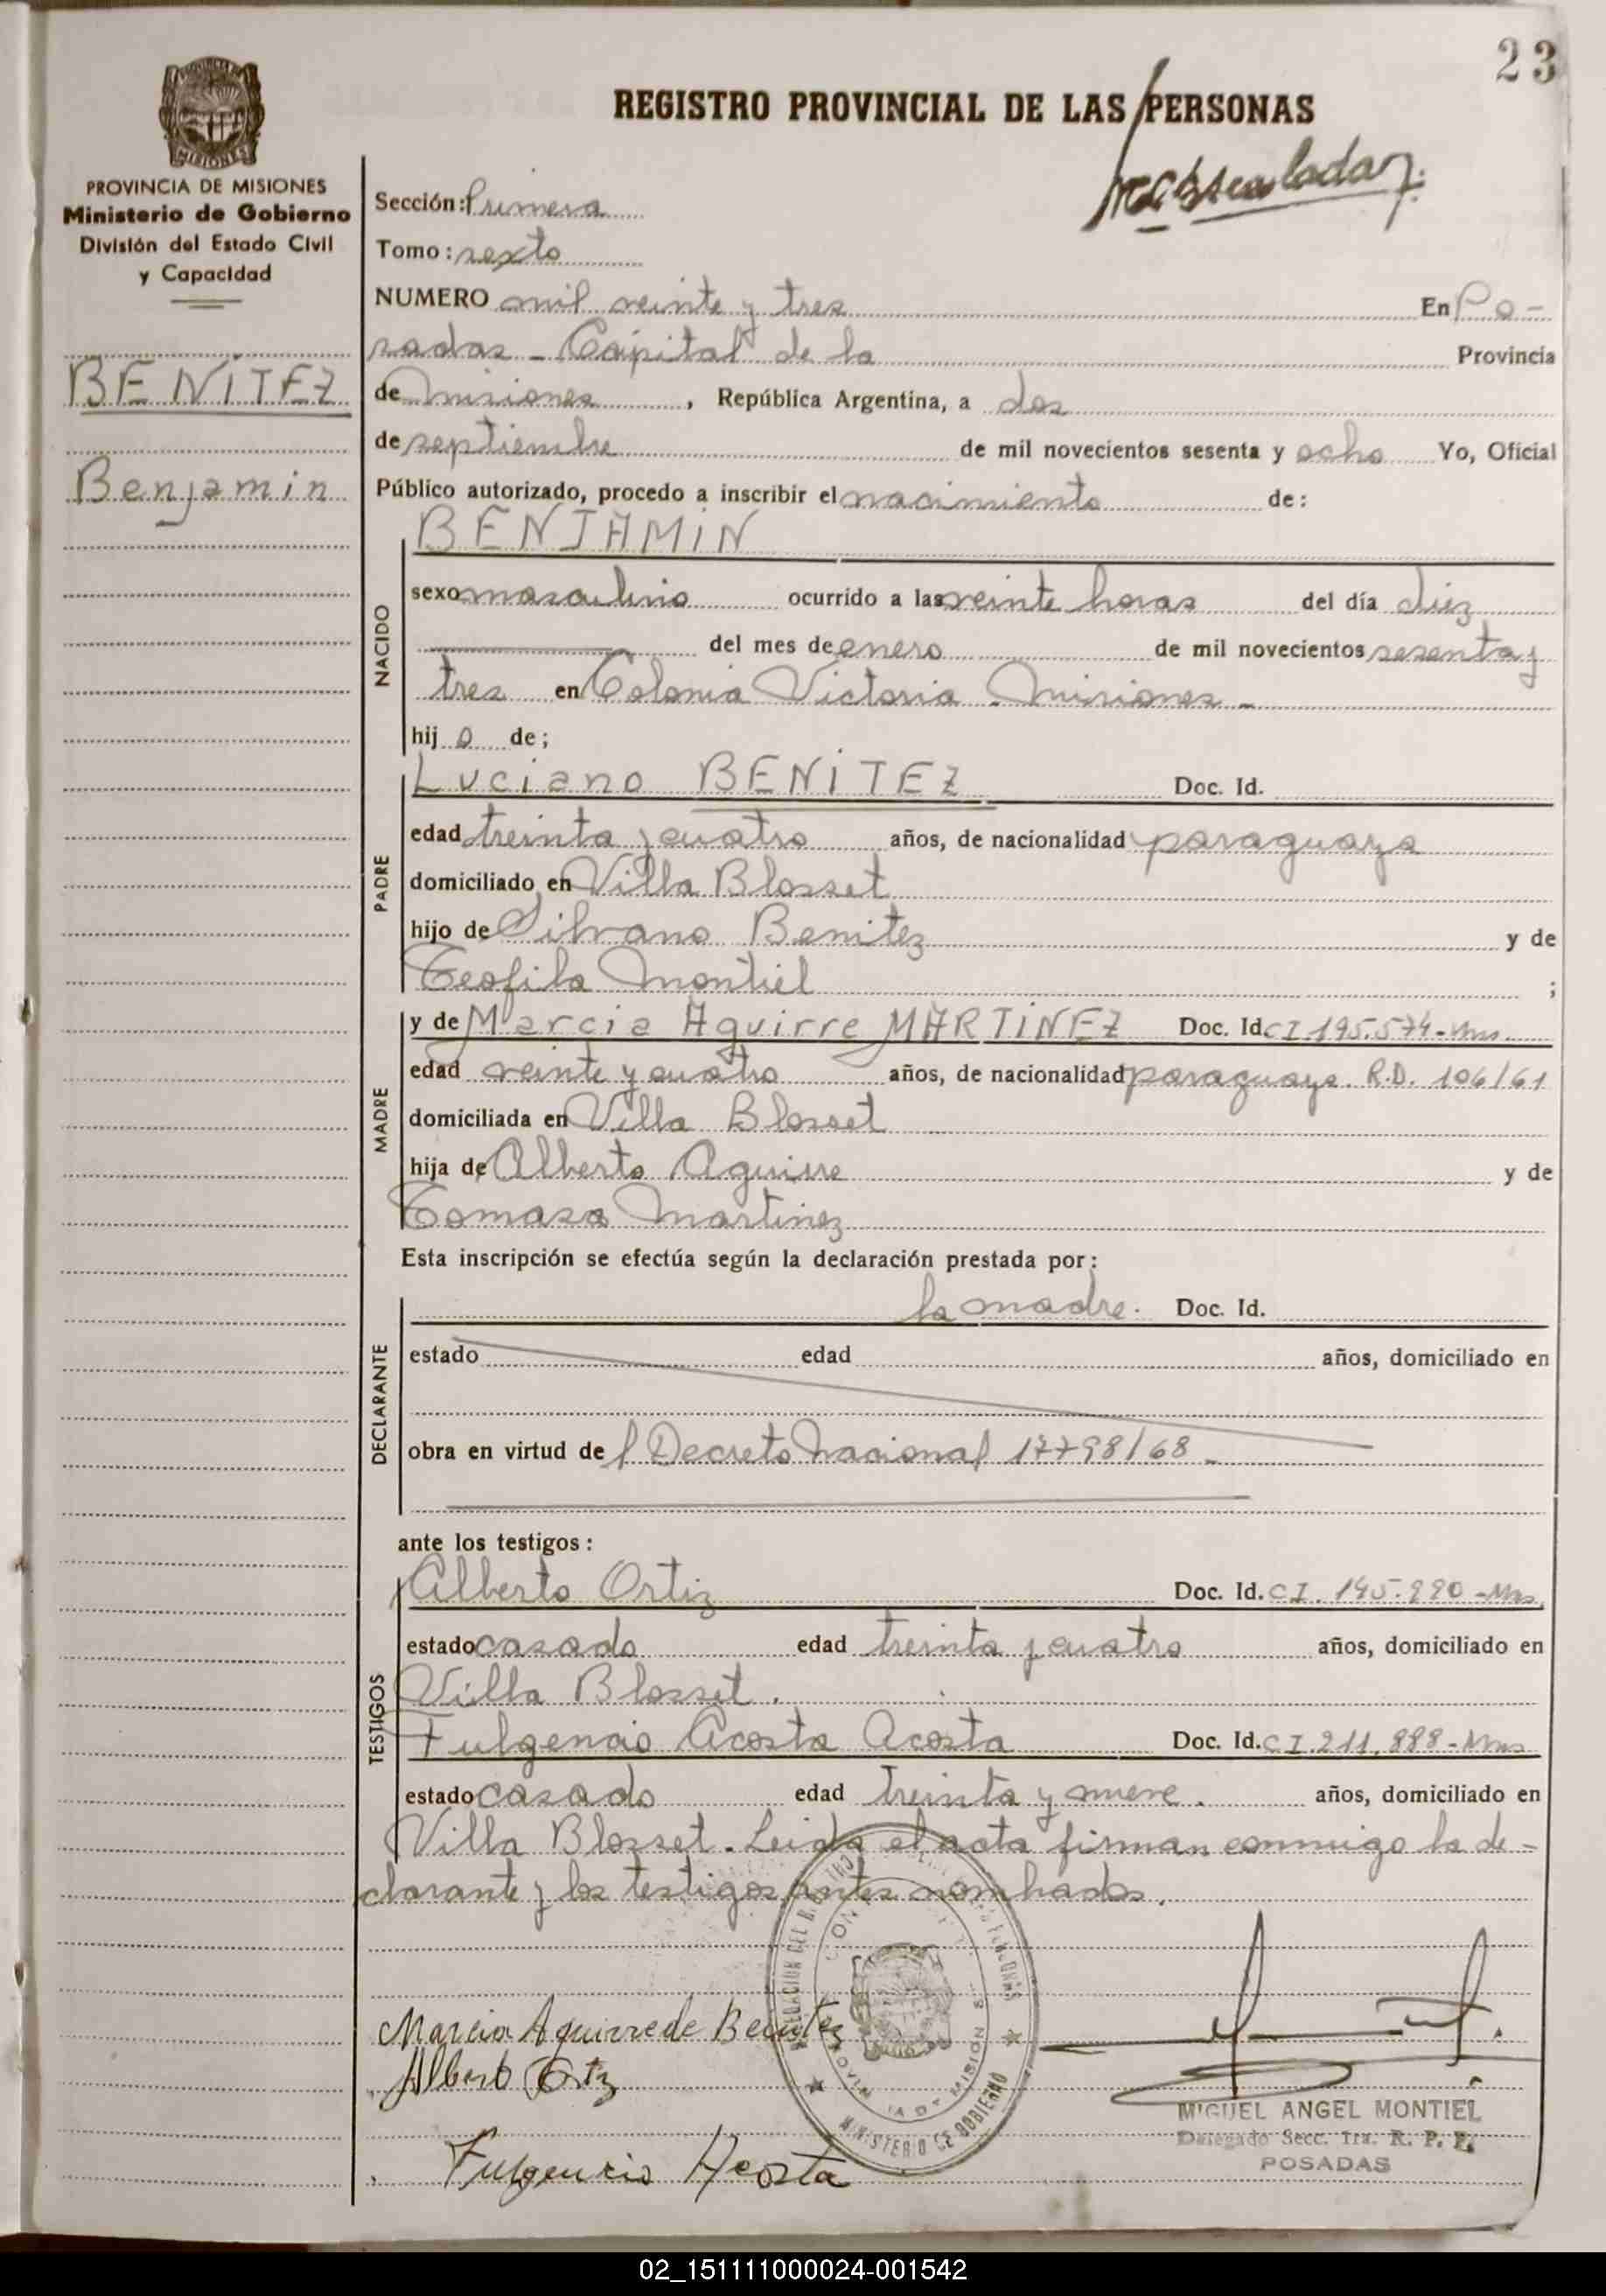 23
REGISTRO PROVINCIAL DE LAS PERSONAS
PROVINCIA DE MISIONES
Ministerio de Gobierno
División del Estado Civil
y Capacidad
BENITEZ
Benjamin
Sección: Primera
Tomo: sexto
NUMERO mil veinte y tres En Po-
sadas - Capital de la Provincia
de Misiones, República Argentina, a dos
de septiembre de mil novecientos sesenta y ocho Yo, Oficial
Público autorizado, procedo a inscribir el nacimiento de:
BENJAMIN
NACIDO
sexo masculino ocurrido a las veinte horas del día diez
del mes de enero de mil novecientos sesenta y
tres en Colonia Victoria - Misiones -
hijo de;
PADRE
Luciano BENITEZ Doc. Id.
edad treinta y cuatro años, de nacionalidad paraguaya
domiciliado en Villa Blosset
hijo de Silvano Benitez y de
Teofila Montiel ;
MADRE
y de Marcia Aguirre MARTINEZ Doc. Id. C I 195.574-Mns.
edad veinte y cuatro años, de nacionalidad paraguaya. R.D. 106/61
domiciliada en Villa Blosset
hija de Alberto Aguirre y de
Tomasa Martinez
Esta inscripción se efectúa según la declaración prestada por:
DECLARANTE
la madre. Doc. Id.
estado edad años, domiciliado en
obra en virtud de l Decreto Nacional 17798/68 -
ante los testigos:
TESTIGOS
Alberto Ortiz Doc. Id. C I. -Mns.
estado casado edad treinta y cuatro años, domiciliado en
Villa Blosset.
Fulgencio Acosta Acosta Doc. Id. C I. 211.888-Mns
estado casado edad treinta y nueve. años, domiciliado en
Villa Blosset. Leida el acta firman conmigo la de-
clarante y los testigos antes nombrados.
Marcia Aguirre de Benitez
Albert Ortiz
Fulgencio Acosta
MINISTERIO DE GOBIERNO
MIGUEL ANGEL MONTIEL
Delegado Secc. 1ra. R. P. P.
POSADAS
02_151111000024-001542